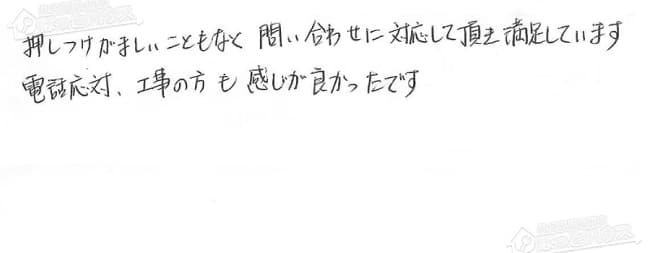 押しつけがましいこともなく 問い合わせに対応して頂き満足しています
電話応対、工事の方も感じが良かったです